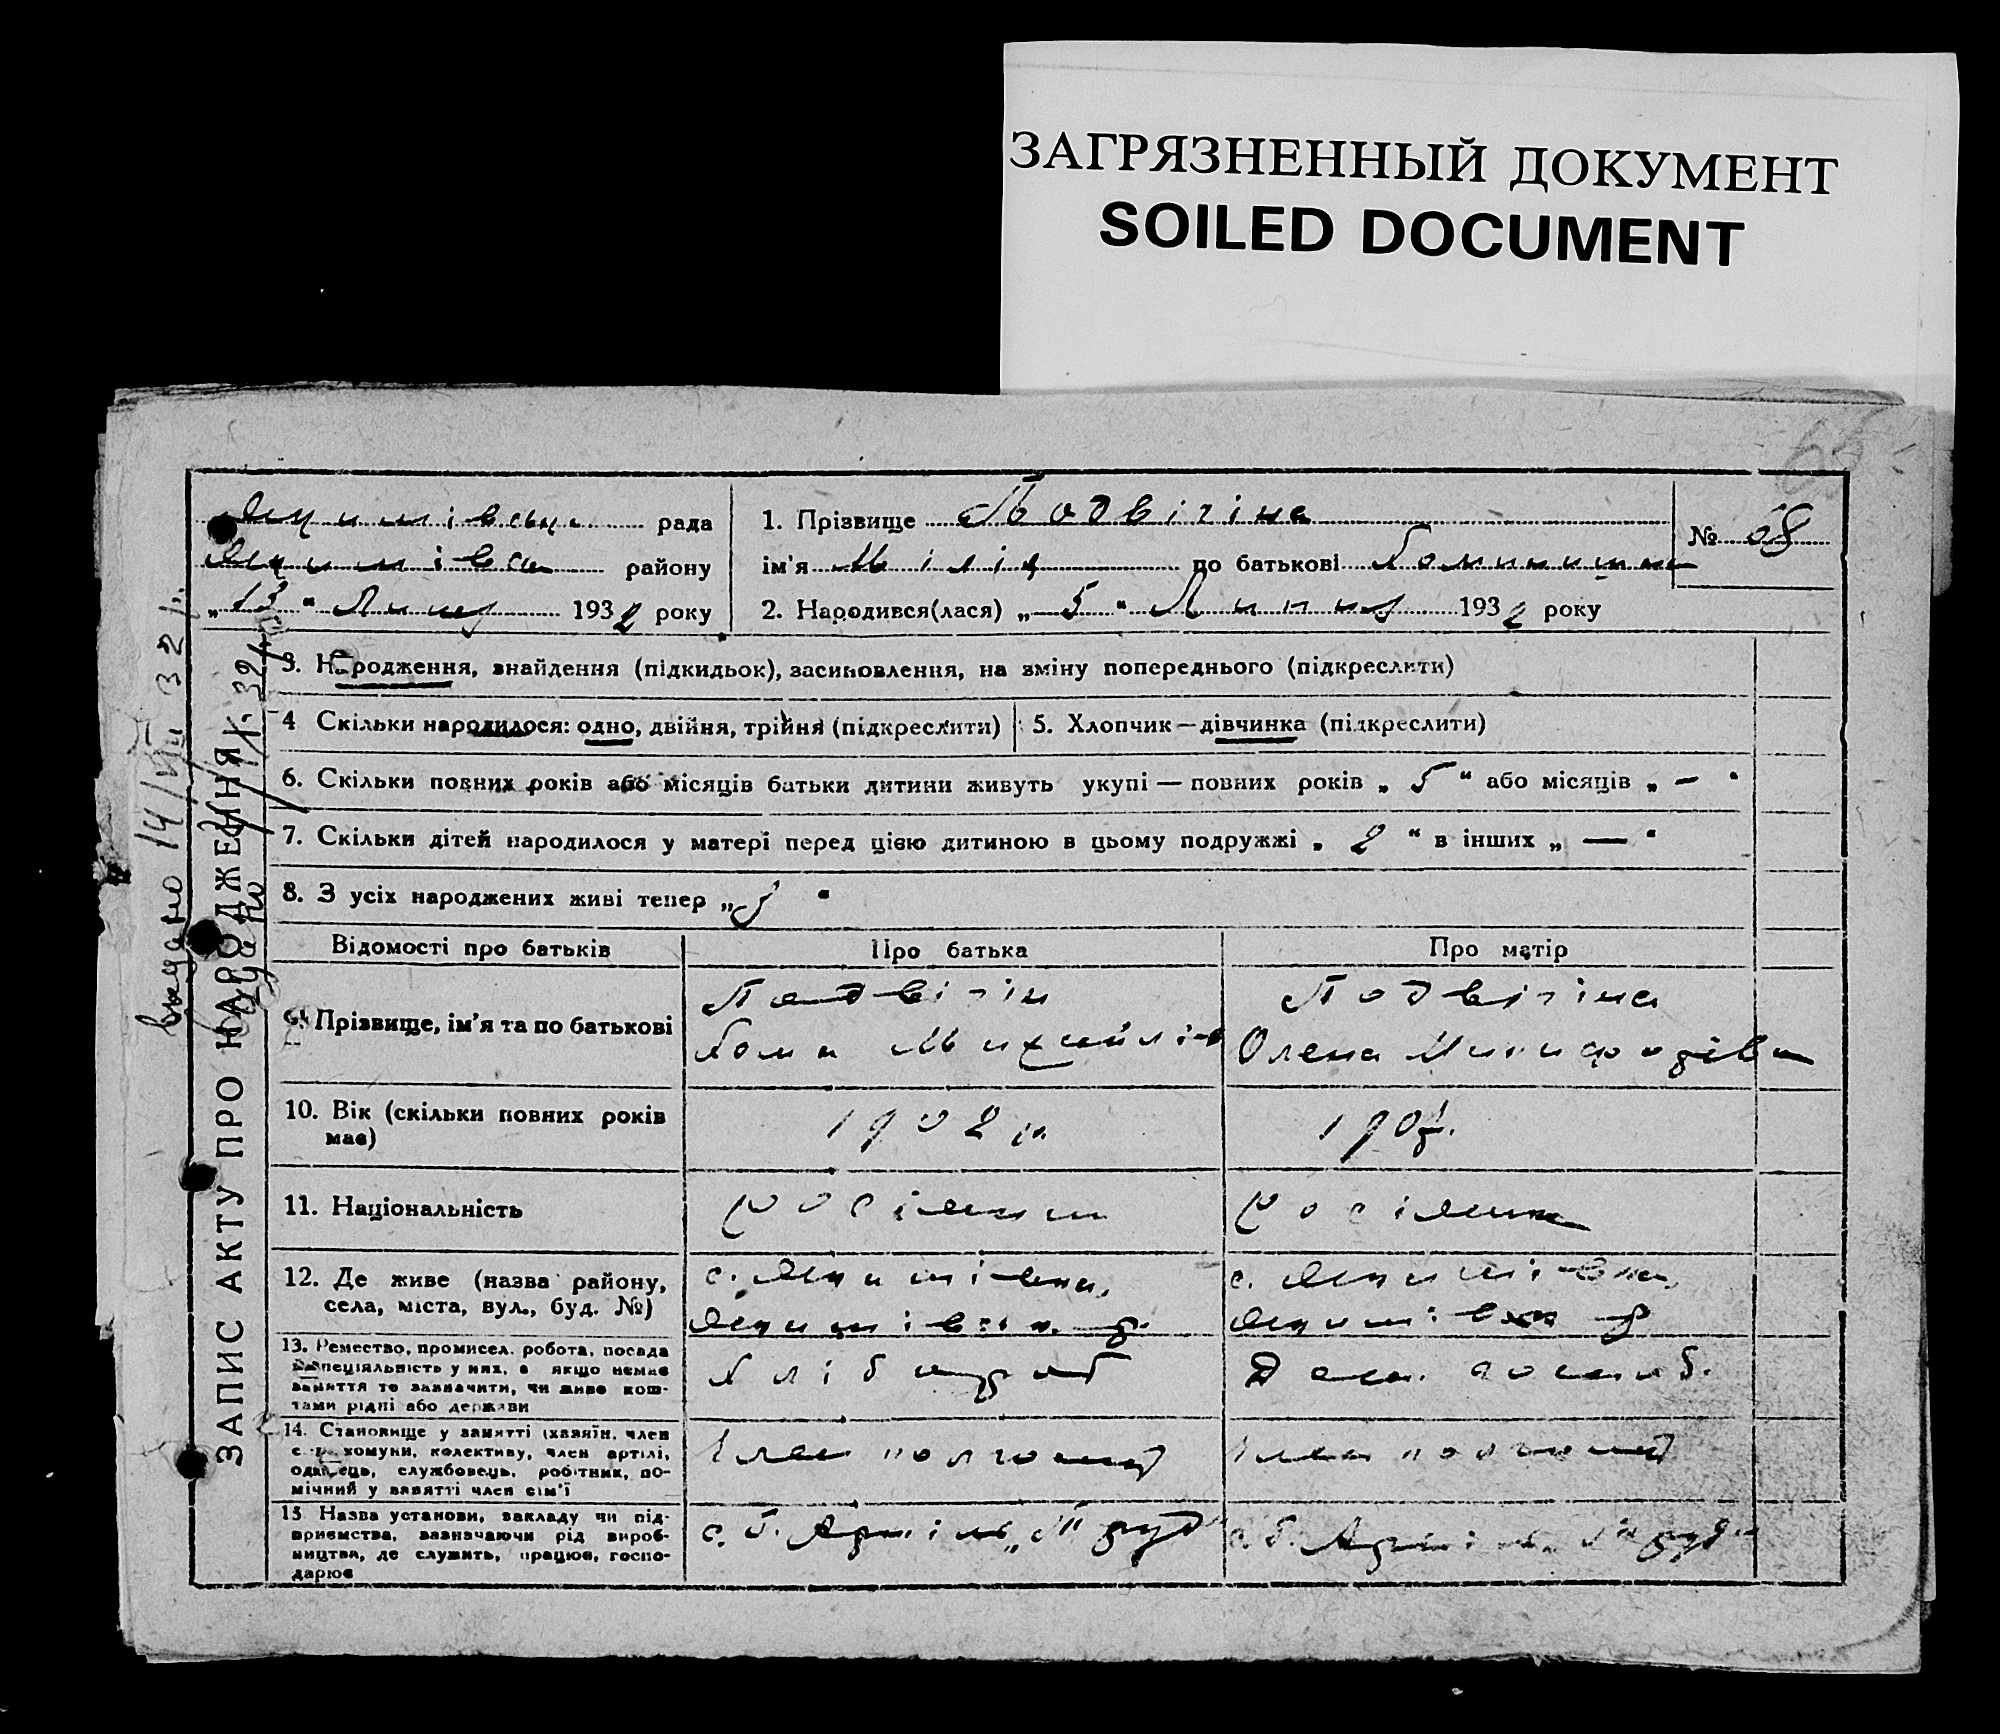 ЗАГРЯЗНЕННЫЙ ДОКУМЕНТ
SOILED DOCUMENT
рада
району
„13“ Липця 1932 року
1. Прізвище Подвігіна
ім'я по батькові
2. Народився(лася) „5“ Липня 1932 року
№ 68
ЗАПИС АКТУ ПРО НАРОДЖЕННЯ
3. Народження, знайдення (підкидьок), засиновлення, на зміну попереднього (підкреслити)
4 Скільки народилося: одно, двійня, трійня (підкреслити)
5. Хлопчик — дівчинка (підкреслити)
6. Скільки повних років або місяців батьки дитини живуть укупі — повних років „5“ або місяців „—“
7. Скільки дітей народилося у матері перед цією дитиною в цьому подружжі „2“ в інших „—“
8. З усіх народжених живі тепер „3“
Відомості про батьків
Про батька
Про матір
9. Прізвище, ім'я та по батькові
Подвігін
Хома Михайлів
Подвігіна
Олена
10. Вік (скільки повних років має)
1902 р.
11. Національність
росіянин
росіянка
12. Де живе (назва району,
села, міста, вул., буд. №)
13. Ремество, промисел, робота, посада
і спеціяльність у них, а якщо немає
заняття то зазначити, чи живе кош-
тами рідні або держави
Хлібороб
Дом. господ.
14. Становище у занятті (хазяїн, член
с.-г. комуни, колективу, член артілі,
одинець, службовець, робітник, по-
мічний у занятті член сім'ї
Член колгоспу
Член колгоспу
15. Назва установи, закладу чи під-
приємства, зазначаючи рід вироб-
ництва, де служить, працює, госпо-
дарює
с. г. Артіль „Труд“
с. г. Артіль „Труд“